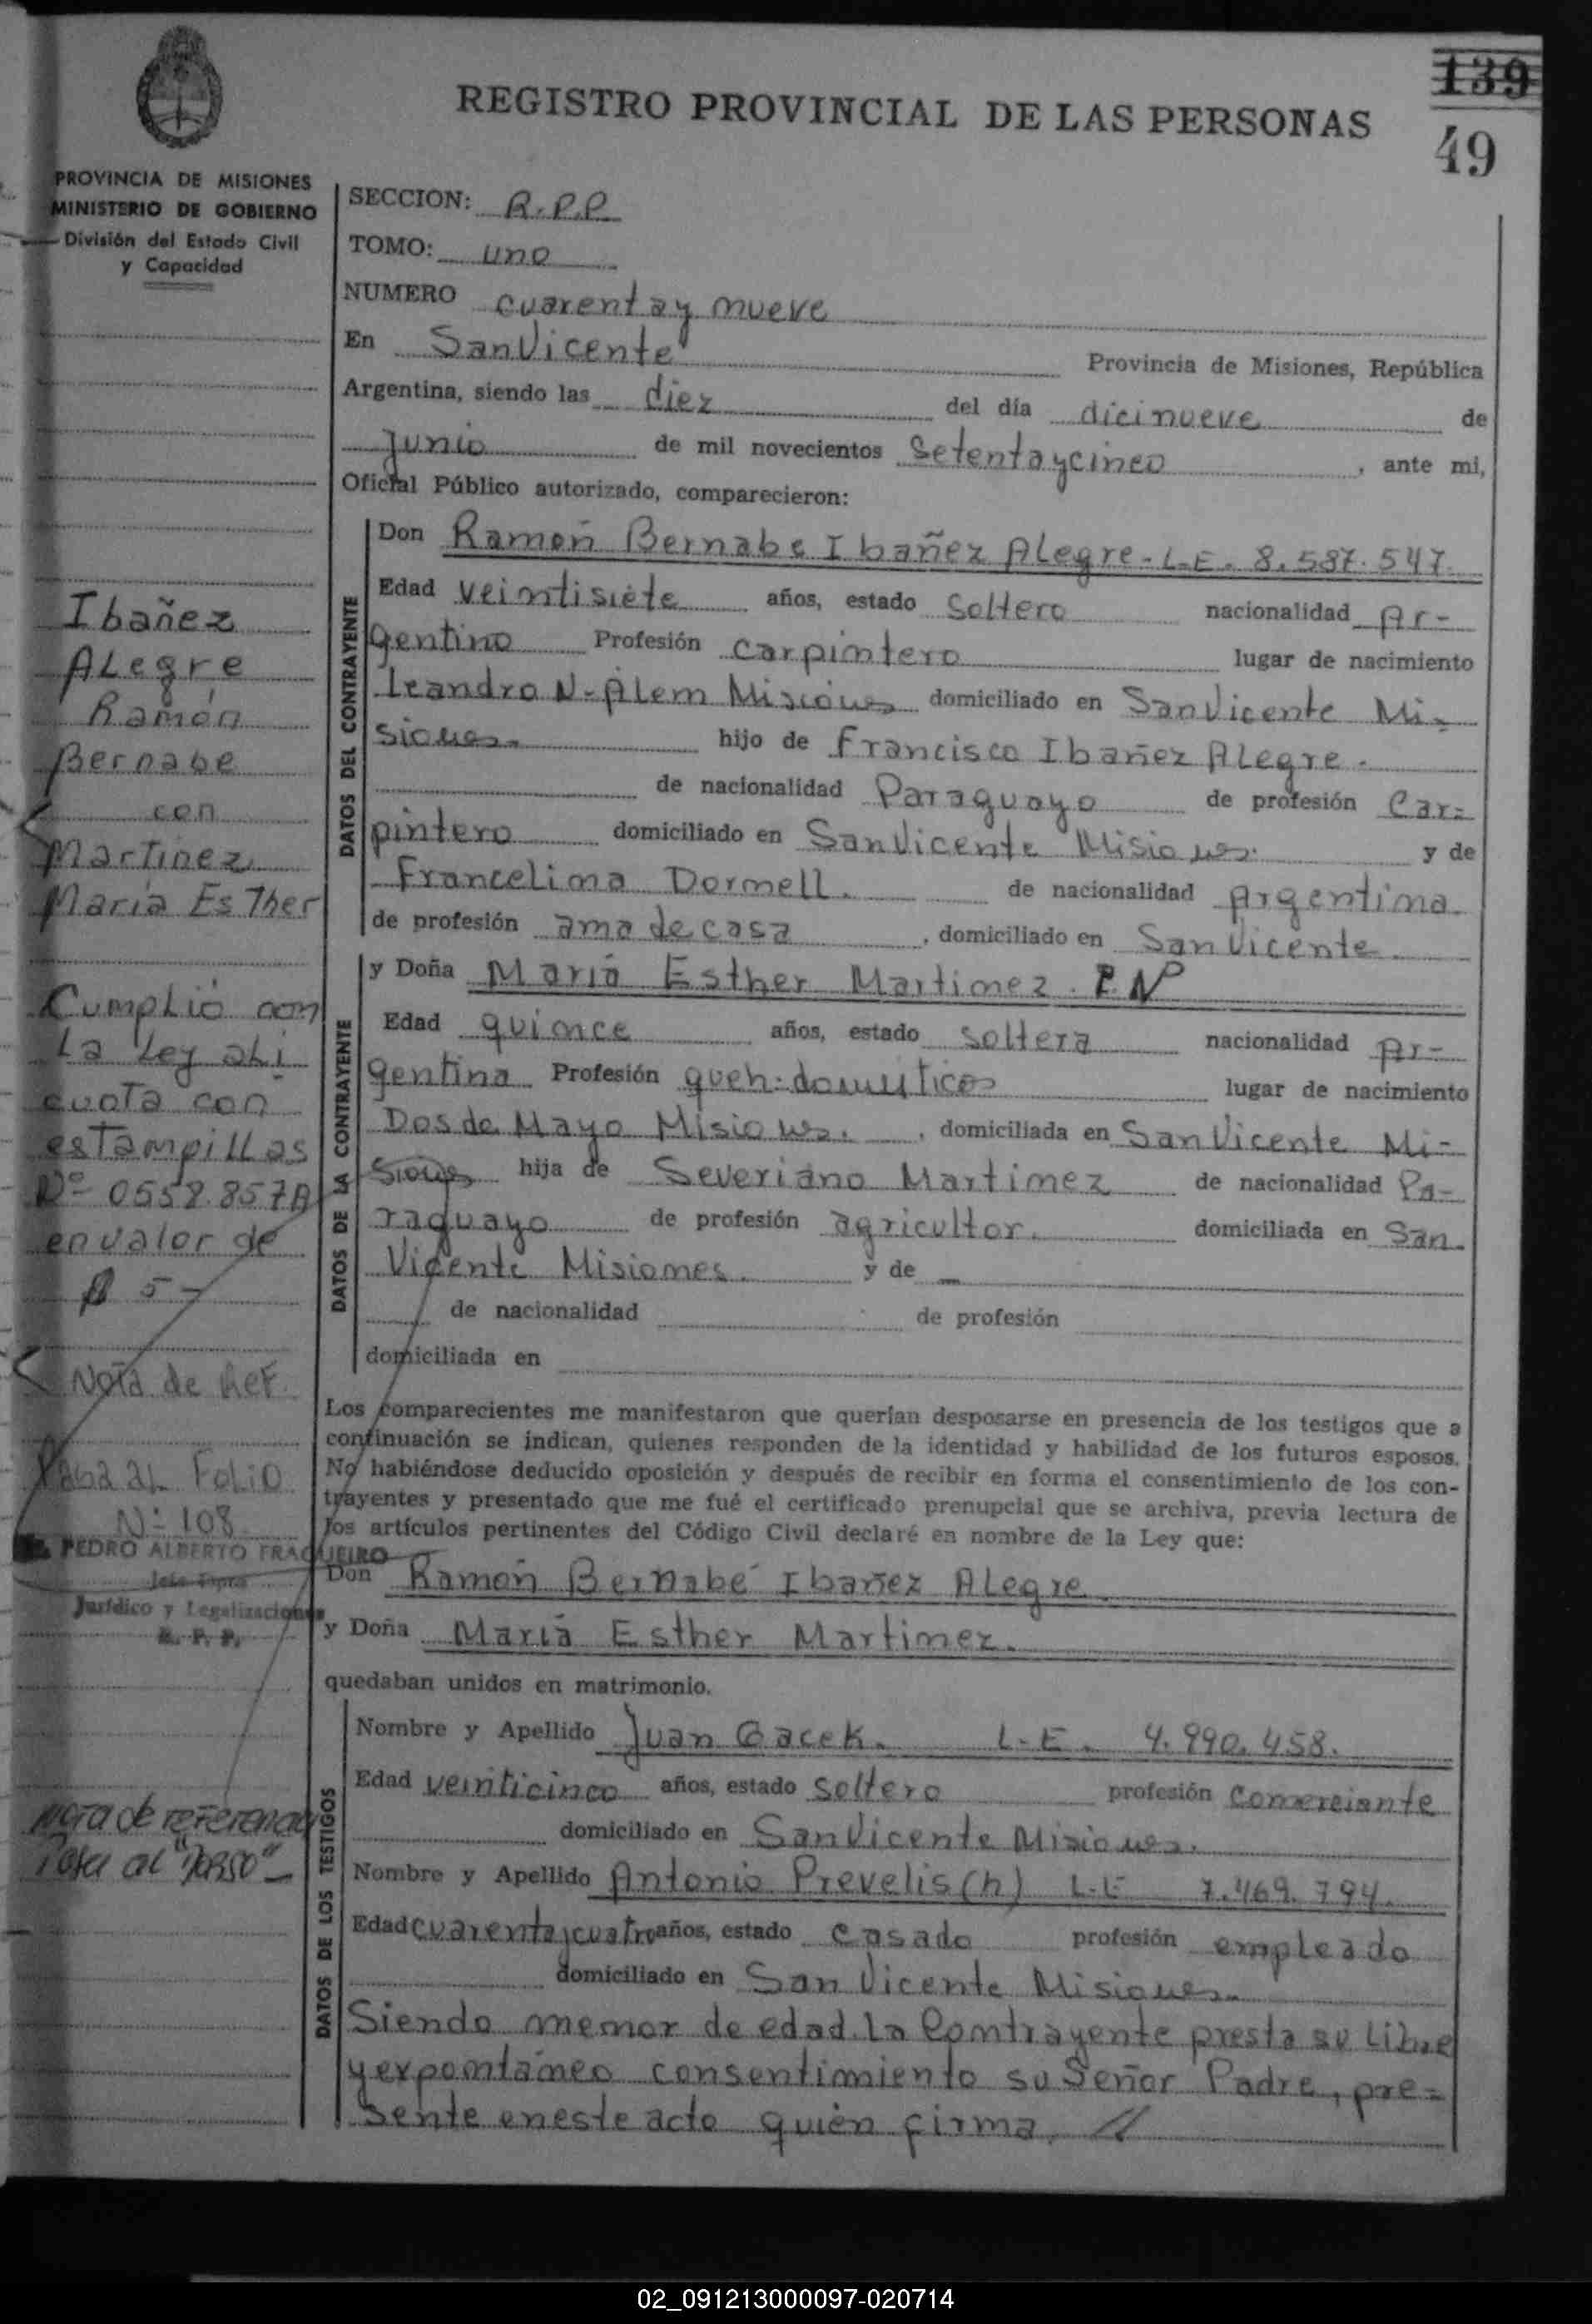 139
REGISTRO PROVINCIAL DE LAS PERSONAS
49
PROVINCIA DE MISIONES
MINISTERIO DE GOBIERNO
División del Estado Civil
y Capacidad
SECCION: R.P.P
TOMO: uno
NUMERO cuarenta y nueve
En San Vicente Provincia de Misiones, República
Argentina, siendo las diez del día dicinueve de
Junio de mil novecientos setenta y cinco, ante mi,
Oficial Público autorizado, comparecieron:
DATOS DEL CONTRAYENTE
Don Ramón Bernabe Ibañez Alegre - L.E. 8.587.547
Edad veintisiete años, estado soltero nacionalidad Ar-
gentino Profesión carpintero lugar de nacimiento
Leandro N-Alem Misiones domiciliado en San Vicente Mi-
siones.- hijo de Francisco Ibañez Alegre.
de nacionalidad Paraguayo de profesión Car=
pintero domiciliado en San Vicente Misiones. y de
Francelina Dormell. de nacionalidad Argentina
de profesión ama de casa, domiciliado en San Vicente.
DATOS DE LA CONTRAYENTE
y Doña Maria Esther Martinez. P.N
Edad quince años, estado soltera nacionalidad Ar-
gentina Profesión queh. domesticos lugar de nacimiento
Dos de Mayo Misiones., domiciliada en San Vicente Mi-
siones hija de Severiano Martinez de nacionalidad Pa-
raguayo de profesión agricultor. domiciliada en San
Vicente Misiones. y de —
de nacionalidad de profesión
domiciliada en
Los comparecientes me manifestaron que querían desposarse en presencia de los testigos que a
continuación se indican, quienes responden de la identidad y habilidad de los futuros esposos.
No habiéndose deducido oposición y después de recibir en forma el consentimiento de los con-
trayentes y presentado que me fué el certificado prenupcial que se archiva, previa lectura de
los artículos pertinentes del Código Civil declaré en nombre de la Ley que:
Don Ramón Bernabé Ibañez Alegre
y Doña Maria Esther Martinez.
quedaban unidos en matrimonio.
DATOS DE LOS TESTIGOS
Nombre y Apellido Juan Gacek. L.E. 4.990.458.
Edad veinticinco años, estado soltero profesión comerciante
domiciliado en San Vicente Misiones.
Nombre y Apellido Antonio Prevelis (h) L.E 7.469.794.
Edad cuarenta y cuatro años, estado casado profesión empleado
domiciliado en San Vicente Misiones.
Siendo menor de edad la Contrayente presta su libre
y expontáneo consentimiento su Señor Padre, pre=
sente en este acto quién firma. //
Ibañez
Alegre
Ramón
Bernabe
con
Martinez
Maria Esther
Cumplió con
La Ley ali
cuota con
estampillas
Nº 0558.857A
en valor de
$ 5-
Nota de Ref.
Pasa al Folio
Nº 108
PEDRO ALBERTO FRAQUEIRO
Jefe Dpto
Jurídico y Legalizaciones
R. P. P.
Nota de referencia
Pasa al "Dorso"-
02_091213000097-020714